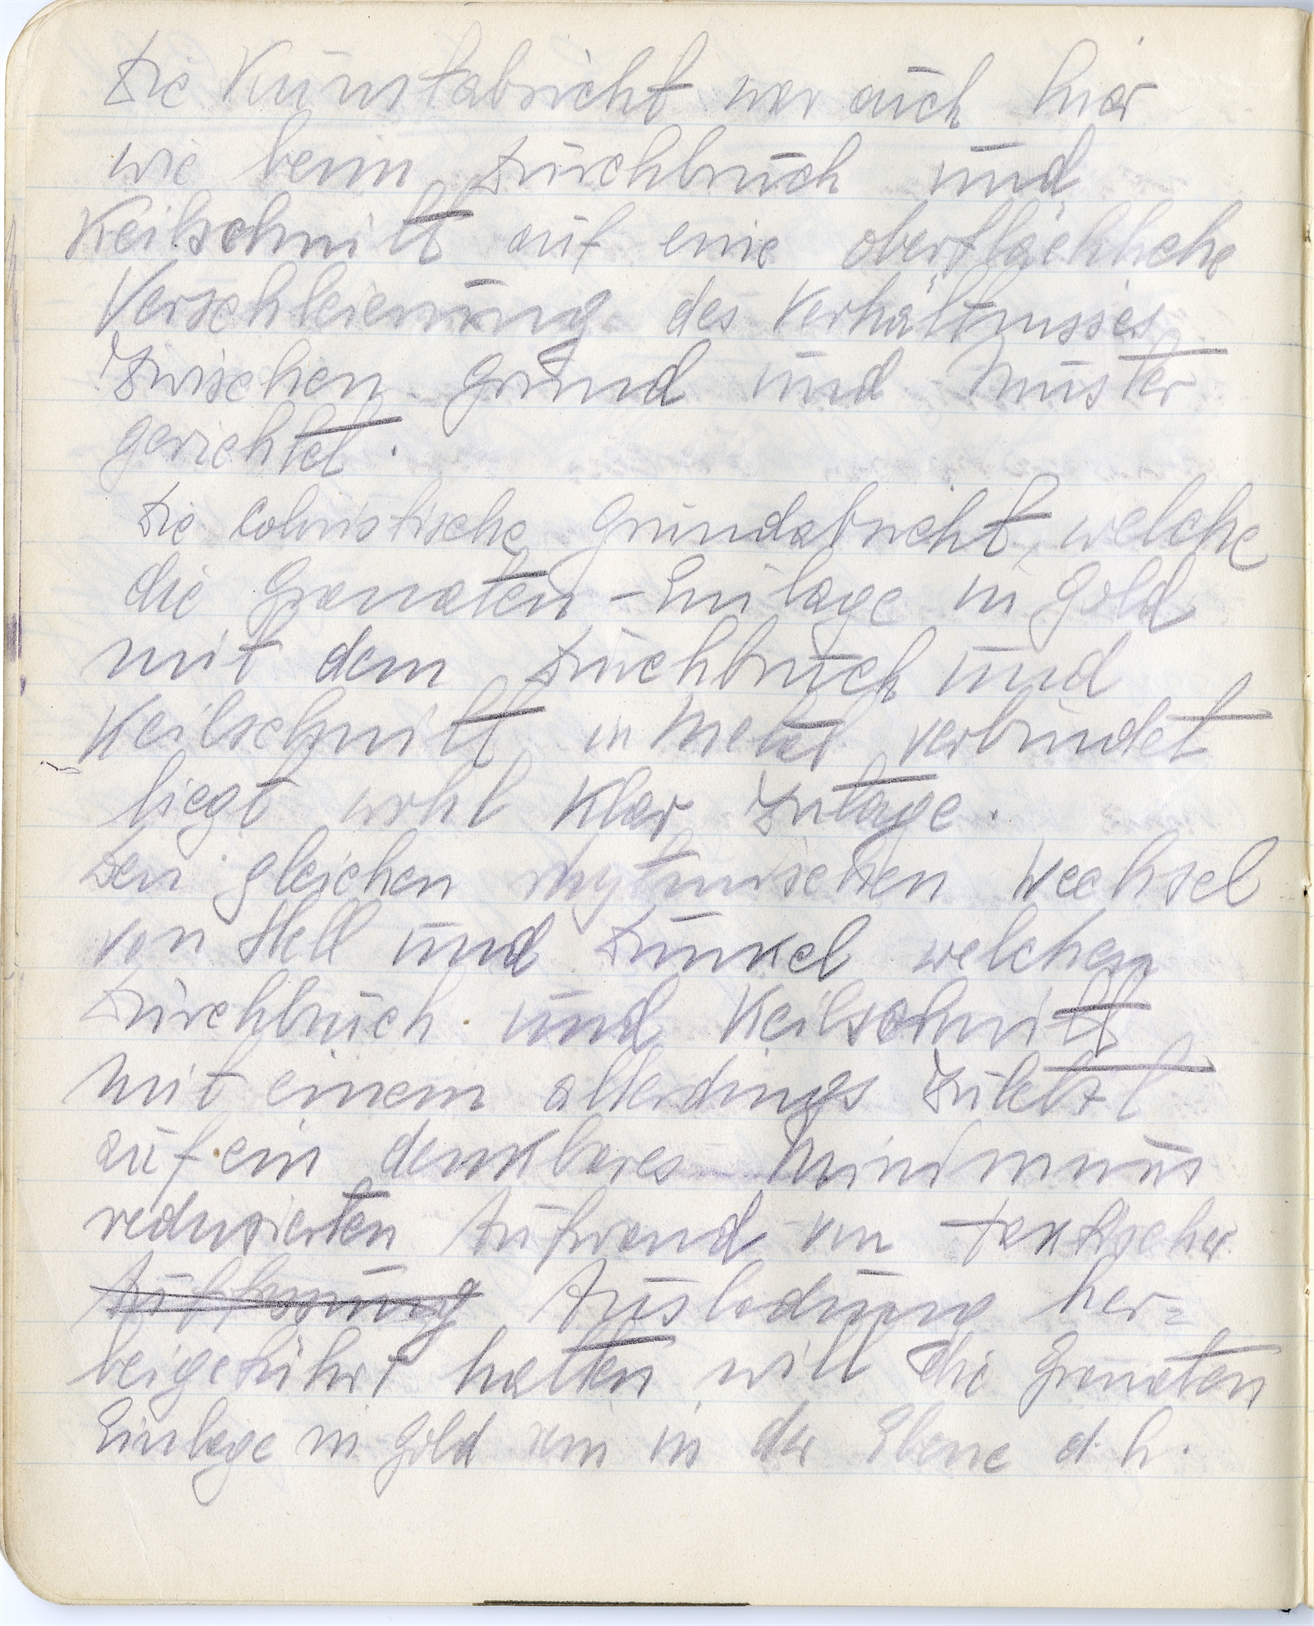 Die Kunstabsicht war auch hier
wie beim Durchbruch und
Keilschnitt auf eine oberflächliche
Verschleierung des Verhältnisses
Zwischen Grund und Muster
gerichtet.
Die Coloristische Grundabsicht, welche
die Granaten-Einlage in Gold
mit dem Durchbruch und
Keilschnitt in Metal verbindet
liegt wohl Klar Zutage.
Den gleichen rhytmischen Wechsel
von Hell und Dunkel welchen
Durchbruch und Keilschnitt
Mit einem allerdings Zuletzt
auf ein denkbares Minimum
reduzierten Aufwand von taktischer
Ausladung her=
beigeführt hatten will die Granaten
Einlage in Gold rein in der Ebene d.h.